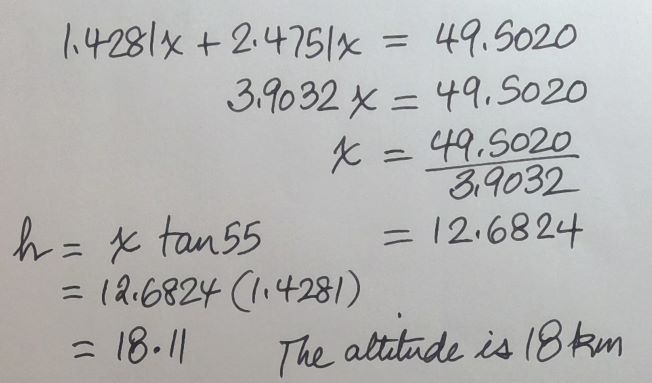 1.4281x + 2.4751x = 49.5020
3.9032x = 49.5020
x = 49.5020
3.9032
h = x tan55
= 12.6824
= 12.6824 (1.4281)
= 18.11 The altitude is 18 km